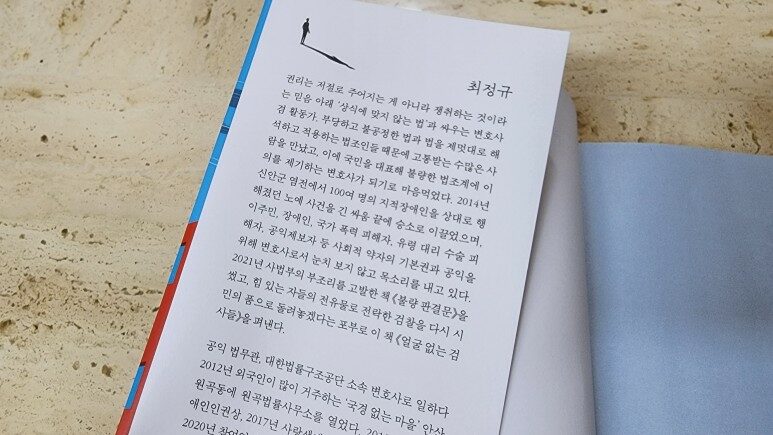 최정규
권리는 저절로 주어지는 게 아니라 쟁취하는 것이라
는 믿음 아래 '상식에 맞지 않는 법'과 싸우는 변호사
겸 활동가. 부당하고 불공정한 법과 법을 제멋대로 해
석하고 적용하는 법조인들 때문에 고통받는 수많은 사
람을 만났고, 이에 국민을 대표해 불량한 법조계에 이
의를 제기하는 변호사가 되기로 마음먹었다. 2014년
신안군 염전에서 100여 명의 지적장애인을 상대로 행
해졌던 노예 사건을 긴 싸움 끝에 승소로 이끌었으며,
이주민, 장애인, 국가 폭력 피해자, 유령 대리 수술 피
해자, 공익제보자 등 사회적 약자의 기본권과 공익을
위해 변호사로서 눈치 보지 않고 목소리를 내고 있다.
2021년 사법부의 부조리를 고발한 책 《불량 판결문》을
썼고, 힘 있는 자들의 전유물로 전락한 검찰을 다시 시
민의 품으로 돌려놓겠다는 포부로 이 책 《얼굴 없는 검
사들》을 펴낸다.
공익 법무관, 대한법률구조공단 소속 변호사로 일하다
2012년 외국인이 많이 거주하는 '국경 없는 마을' 안산
원곡동에 원곡법률사무소를 열었다.
애인인권상, 2017년
2020년